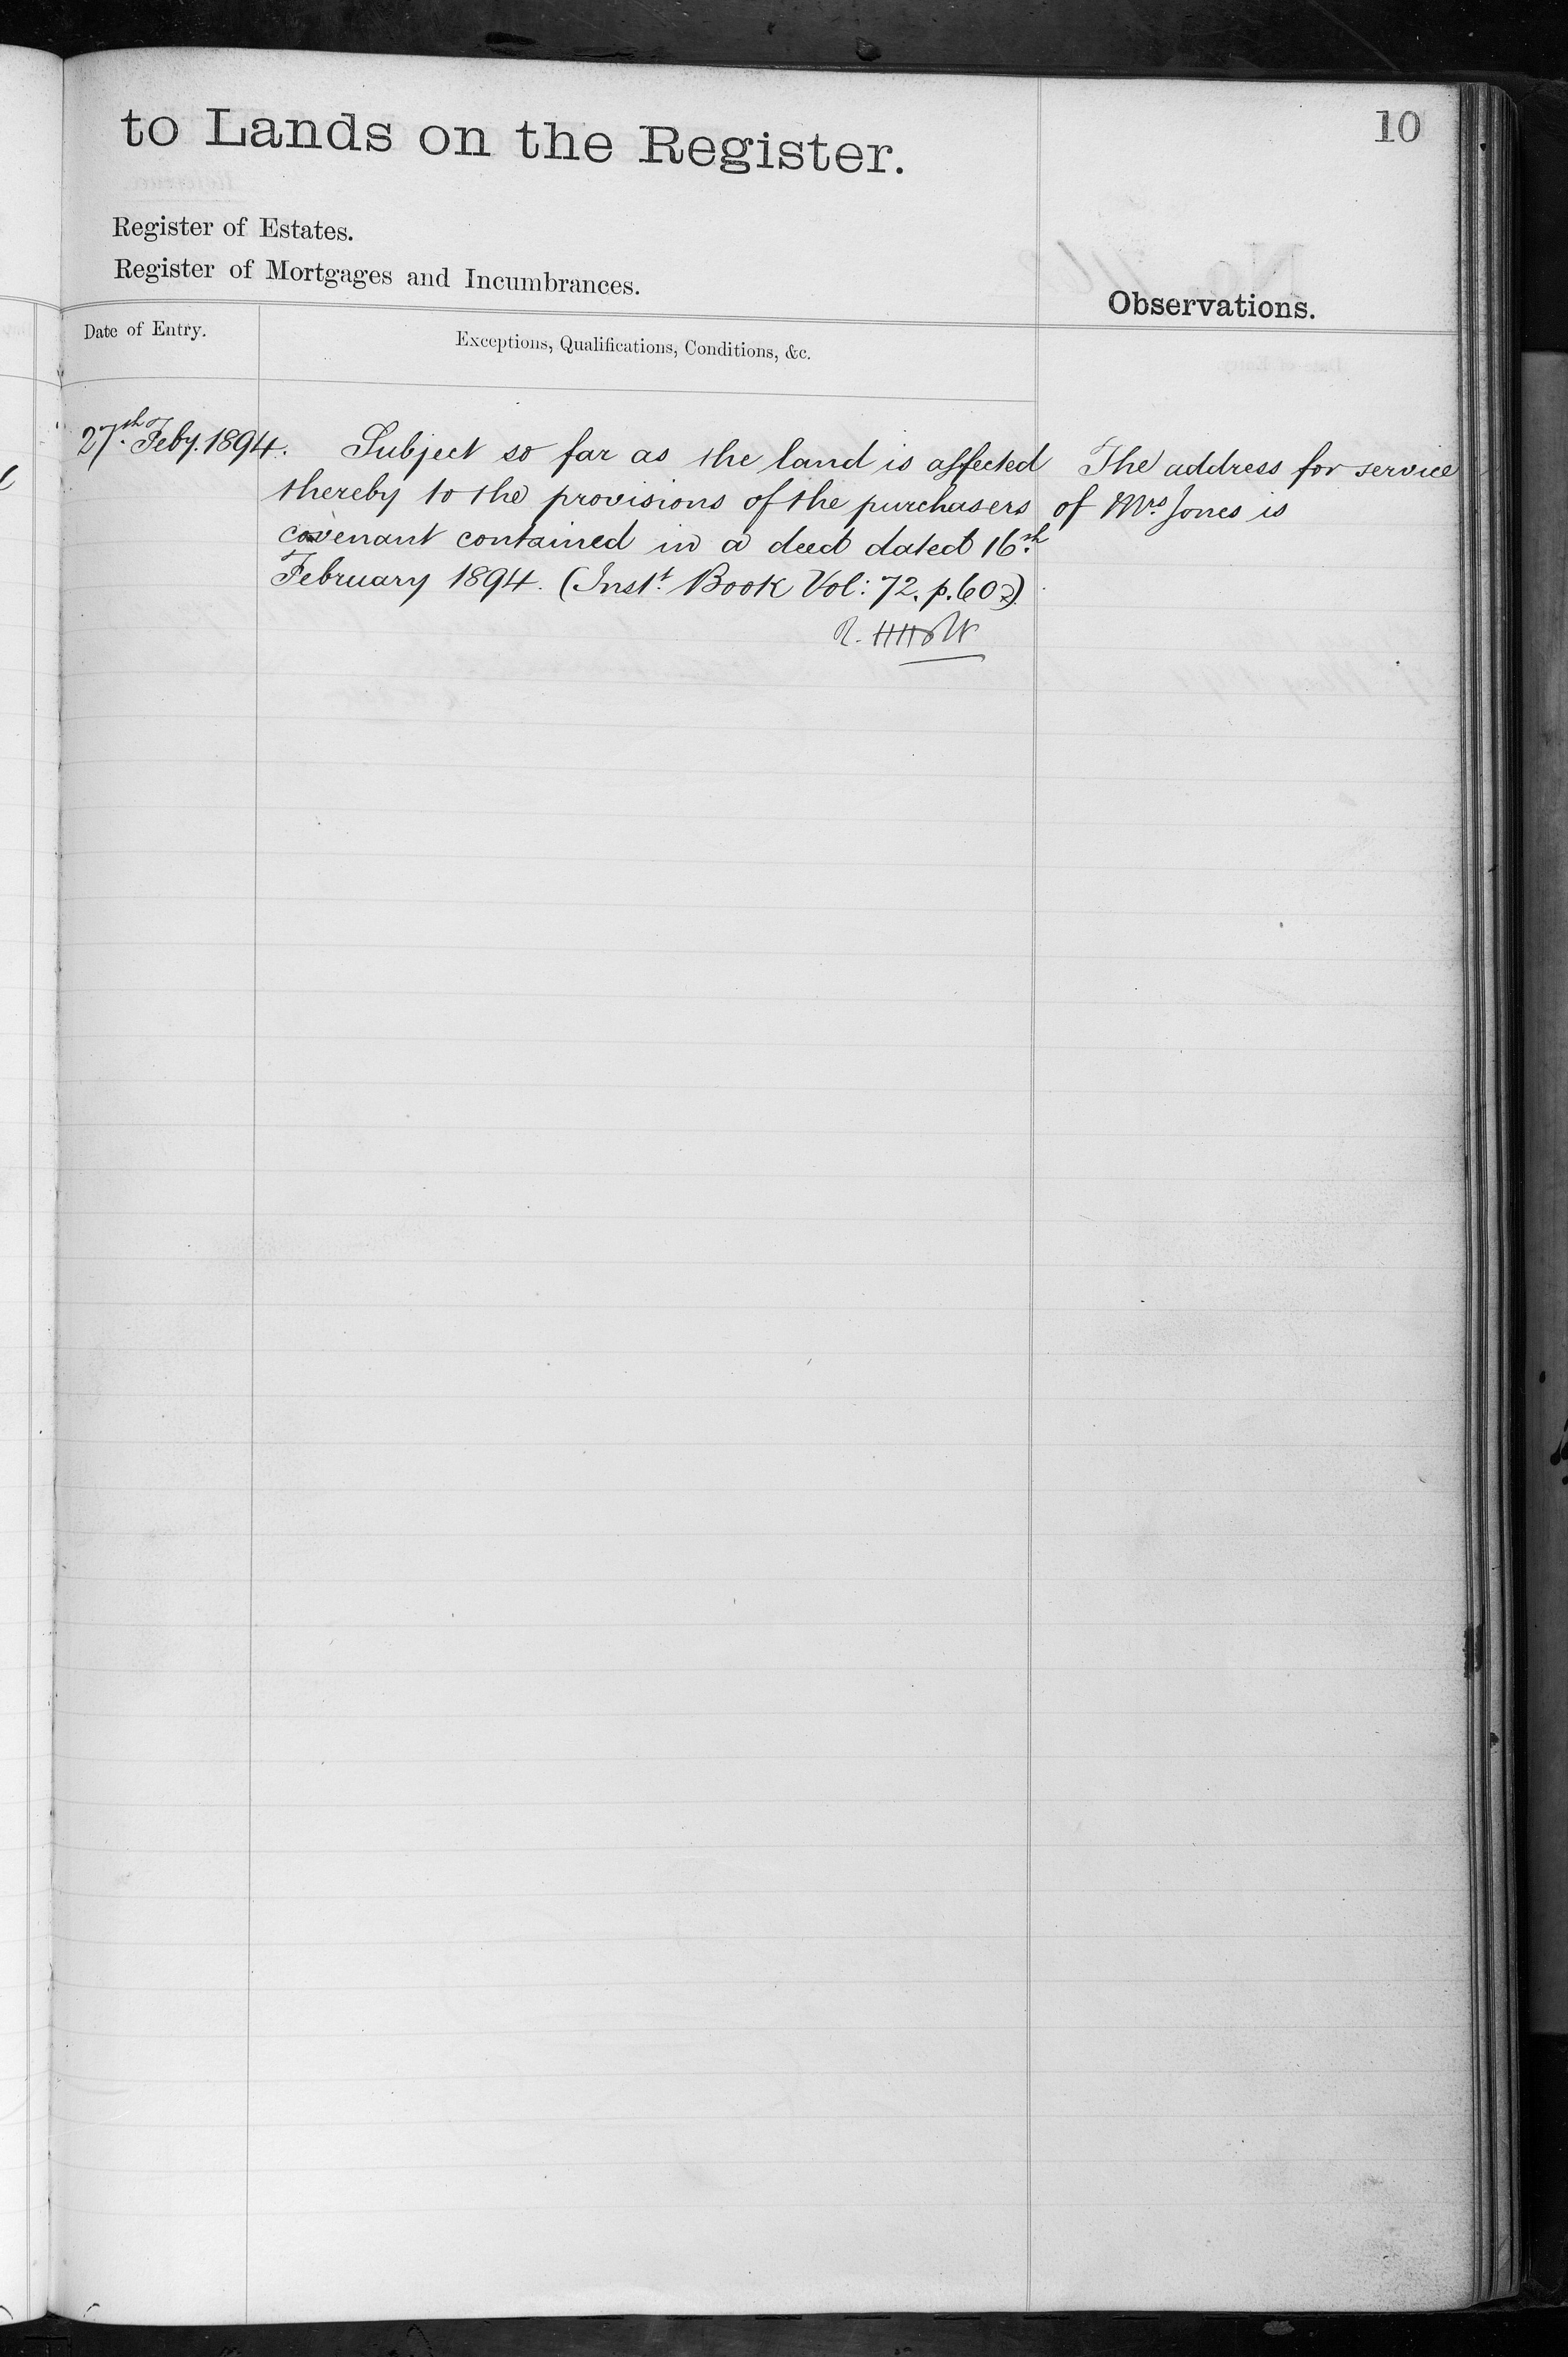 to Lands on the Register.
10
Register of Estates.
Register of Mortgages and Incumbrances.
Observations.
Date of Entry.
Exceptions, Qualifications, Conditions, &c.
27th Feby. 1894.
Subject so far as the land is affected
thereby to the provisions of the purchasers
covenant contained in a deed dated 16th
February 1894. (Inst. Book Vol: 72. p. 602)
The address for service
of Mrs Jones is